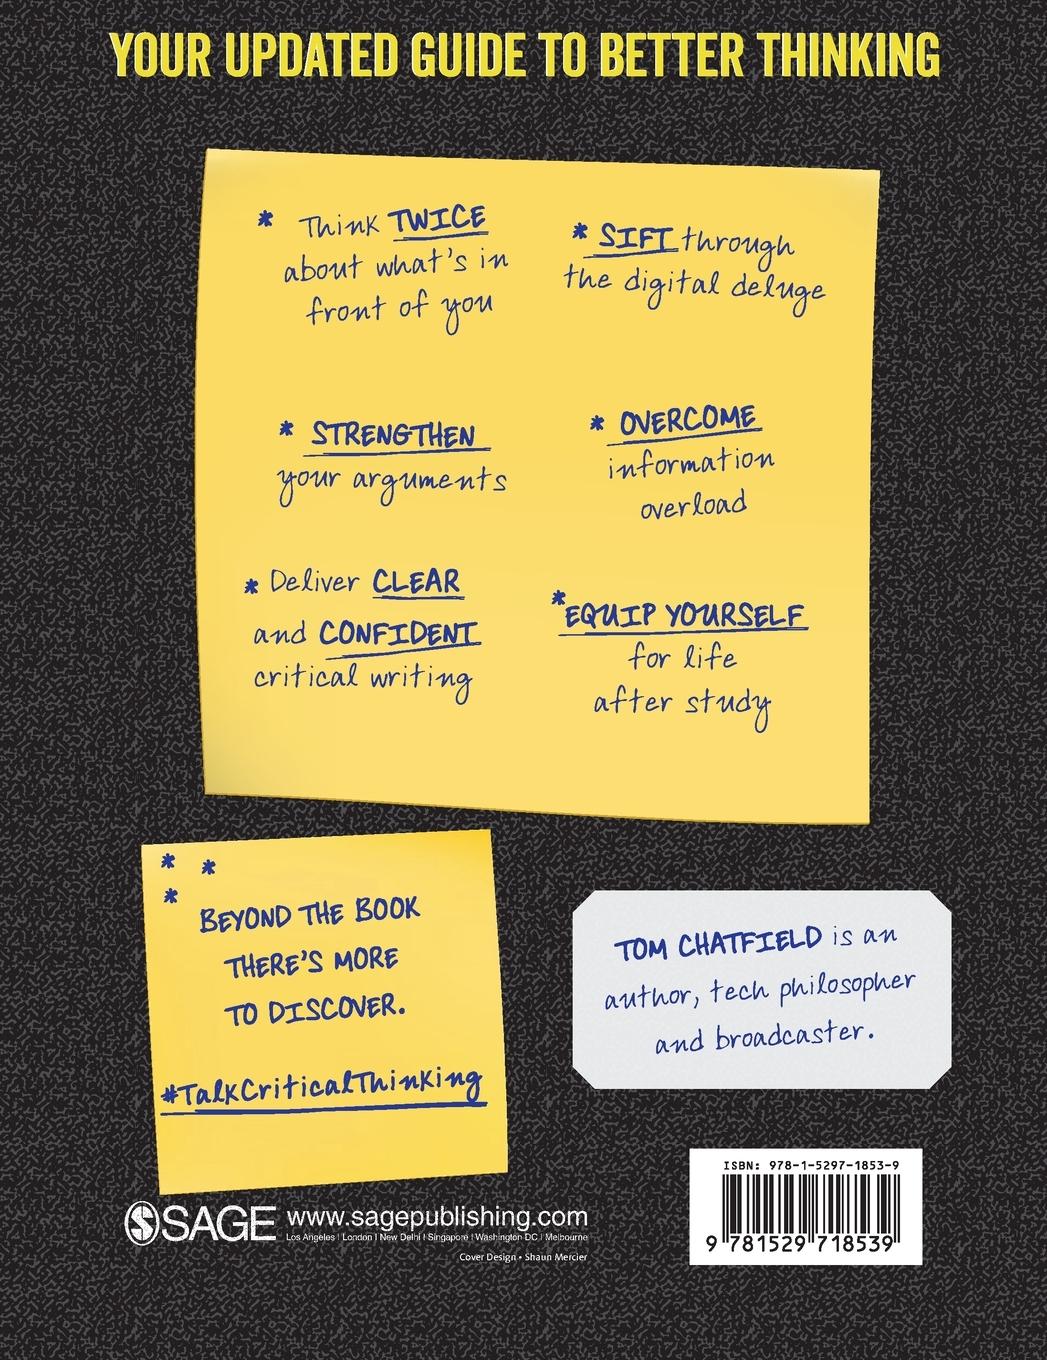 YOUR UPDATED GUIDE TO BETTER THINKING
* Think TWICE
about what's in
front of you
* SIFT through
the digital deluge
* STRENGTHEN
your arguments
* OVERCOME
information
overload
* Deliver CLEAR
and CONFIDENT
critical writing
* EQUIP YOURSELF
for life
after study
* *
*
BEYOND THE BOOK
THERE'S MORE
TO DISCOVER.
#TalkCriticalThinking
TOM CHATFIELD is an
author, tech philosopher
and broadcaster.
SAGE www.sagepublishing.com
Los Angeles | London | New Delhi | Singapore | Washington DC | Melbourne
Cover Design • Shaun Mercier
ISBN: 978-1-5297-1853-9
9 781529 718539